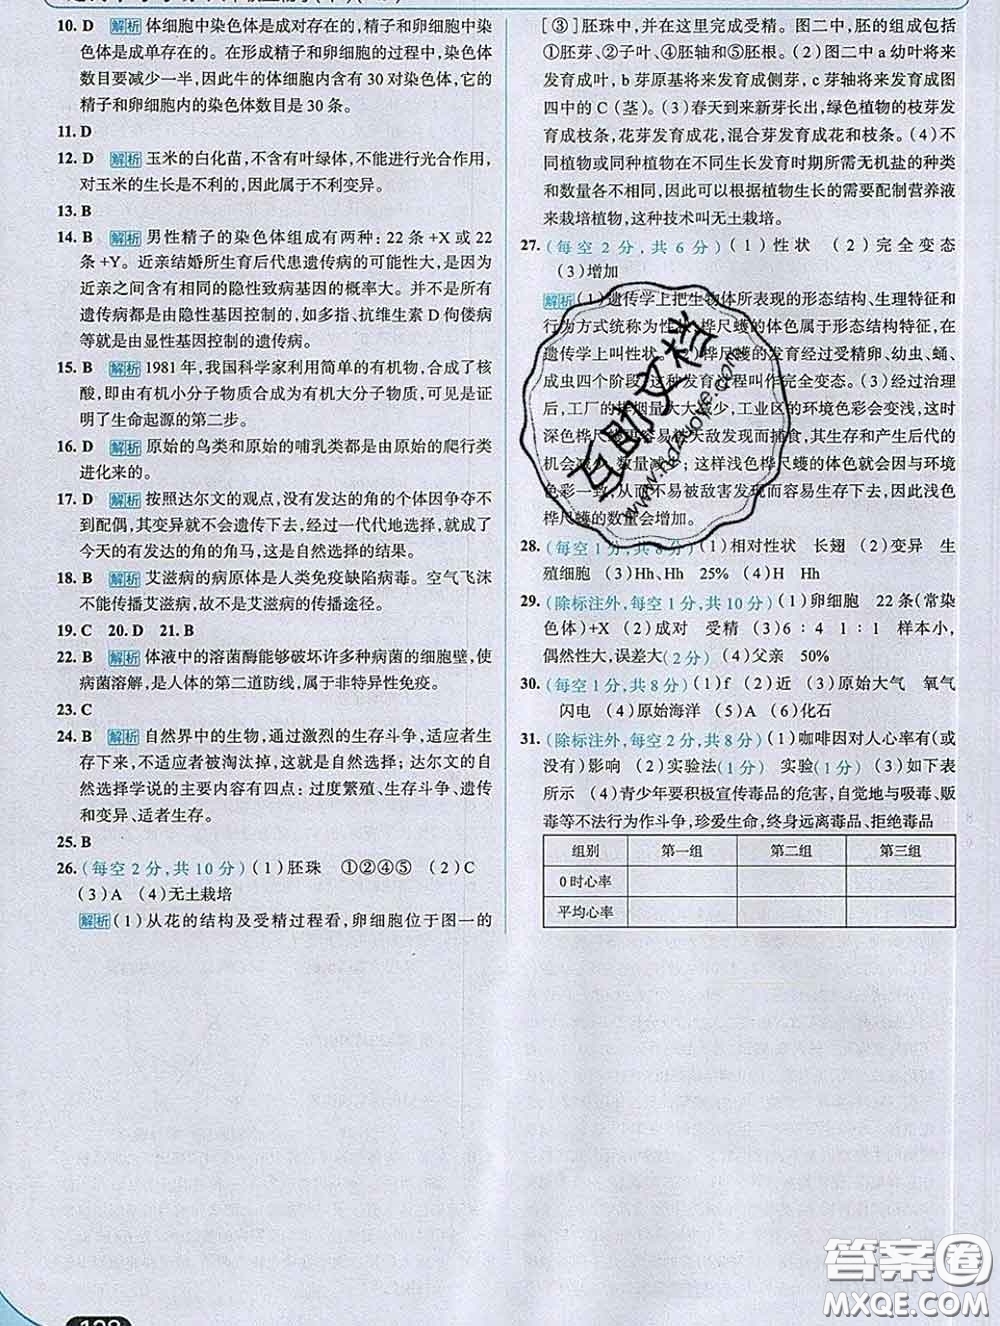 10. D 解析 体细胞中染色体是成对存在的,精子和卵细胞中染
色体是成单存在的。在形成精子和卵细胞的过程中,染色体
数目要减少一半,因此牛的体细胞内含有 30 对染色体,它的
精子和卵细胞内的染色体数目是 30 条。
11. D
12. D 解析 玉米的白化苗,不含有叶绿体,不能进行光合作用,
对玉米的生长是不利的,因此属于不利变异。
13. B
14. B 解析 男性精子的染色体组成有两种: 22 条 +X 或 22
条 +Y。近亲结婚所生育后代患遗传病的可能性大,是因为
近亲之间含有相同的隐性致病基因的概率大。并不是所有
遗传病都是由隐性基因控制的,如多指、抗维生素 D 佝偻病
等就是由显性基因控制的遗传病。
15. B 解析 1981 年,我国科学家利用简单的有机物,合成了核
酸,即由有机小分子物质合成有机大分子物质,可见是证
明了生命起源的第二步。
16. D 解析 原始的鸟类和原始的哺乳类都是由原始的爬行类
进化来的。
17. D 解析 按照达尔文的观点,没有发达的角的个体因争夺不
到配偶,其变异就不会遗传下去,经过一代代地选择,就成了
今天的有发达的角的角马,这是自然选择的结果。
18. B 解析 艾滋病的病原体是人类免疫缺陷病毒。空气飞沫
不能传播艾滋病,故不是艾滋病的传播途径。
19. C 20. D 21. B
22. B 解析 体液中的溶菌酶能够破坏许多种病菌的细胞壁,使
病菌溶解,是人体的第二道防线,属于非特异性免疫。
23. C
24. B 解析 自然界中的生物,通过激烈的生存斗争,适应者生
存下来,不适应者被淘汰掉,这就是自然选择;达尔文的自
然选择学说的主要内容有四点:过度繁殖、生存斗争、遗传
和变异、适者生存。
25. B
26. (每空 2 分,共 10 分) (1)胚珠 ①②④⑤ (2)C
(3)A (4)无土栽培
解析 (1)从花的结构及受精过程看,卵细胞位于图一的
[③]胚珠中,并在此处完成受精。图二中,胚的组成包括
①胚芽、②子叶、④胚轴和⑤胚根。(2)图二中 a 幼叶将来
发育成叶,b 芽原基将来发育成侧芽,c 芽轴将来发育成图
四中的 C(茎)。(3)春天到来新芽长出,绿色植物的枝芽发
育成枝条,花芽发育成花,混合芽发育成花和枝条。(4)不
同植物或同种植物在不同生长发育时期所需无机盐的种类
和数量各不相同,因此可以根据植物生长的需要配制营养液
来栽培植物,这种技术叫无土栽培。
27. (每空 2 分,共 6 分) (1)性状 (2)完全变态
(3)增加
解析 (1)遗传学上把生物体所表现的形态结构、生理特征和
行为方式统称为性状。桦尺蠖的体色属于形态结构特征,在
遗传学上叫性状。(2)桦尺蠖的发育经过受精卵、幼虫、蛹、
成虫四个阶段,这种发育过程叫作完全变态。(3)经过治理
后,工厂的排烟量大大减少,工业区的环境色彩会变浅,这时
深色桦尺蠖更容易被天敌发现而捕食,其生存和产生后代的
机会减少,数量减少;这样浅色桦尺蠖的体色就会因与环境
色彩一致,从而不易被敌害发现而容易生存下去,因此浅色
桦尺蠖的数量会增加。
28. (每空 1 分,共 8 分) (1)相对性状 长翅 (2)变异 生
殖细胞 (3)Hh、Hh 25% (4)H Hh
29. (除标注外,每空 1 分,共 10 分) (1)卵细胞 22 条(常染
色体)+X (2)成对 受精 (3)6 : 4 1 : 1 样本小,
偶然性大,误差大(2 分) (4)父亲 50%
30. (每空 1 分,共 8 分) (1)f (2)近 (3)原始大气 氧气
闪电 (4)原始海洋 (5)A (6)化石
31. (除标注外,每空 2 分,共 8 分) (1)咖啡因对人心率有(或
没有)影响 (2)实验法(1 分) 实验(1 分) (3)如下表
所示 (4)青少年要积极宣传毒品的危害,自觉地与吸毒、贩
毒等不法行为作斗争,珍爱生命,终身远离毒品、拒绝毒品
组别 第一组 第二组 第三组
0 时心率
平均心率
互助文档
www.hdzuoye.com
答案圈
MXQE.COM